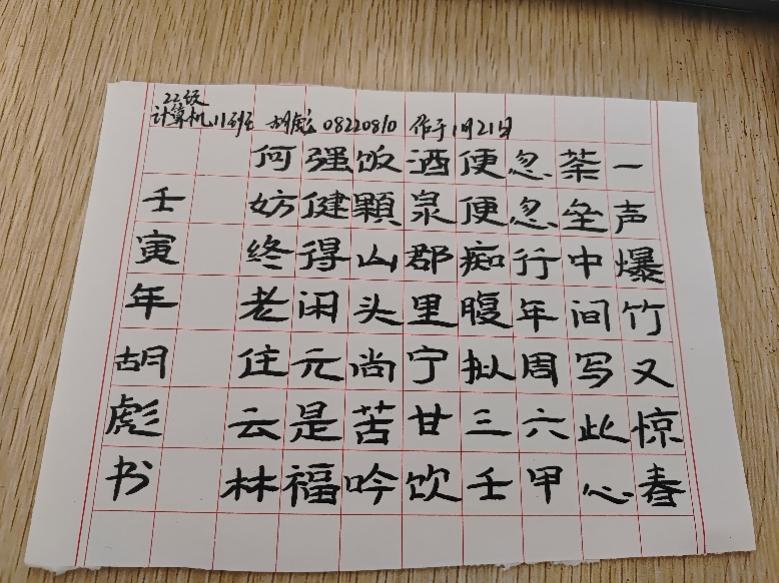 22级
计算机11班 胡彪 08220810 作于1月21日
一声爆竹又惊春
荼垒中间写此心
忽忽行年周六甲
便便痴腹拟三壬
酒泉郡里宁甘饮
饭颗山头尚苦吟
强健得闲元是福
何妨终老住云林
壬寅年胡彪书